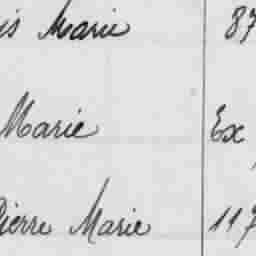 is Marie 87
Marie Ex
Pierre Marie 117